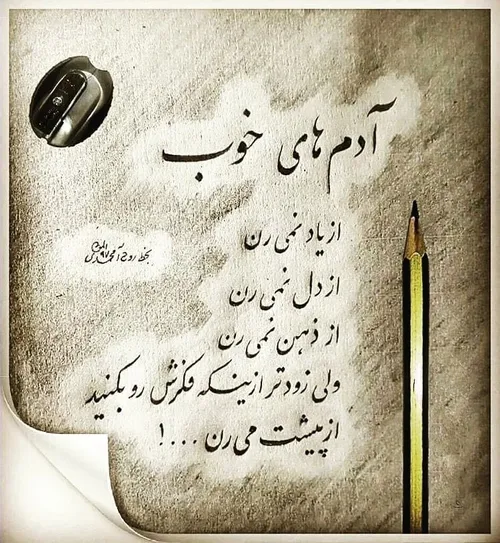 آدم های خوب
از یاد نمی رن
از دل نمی رن
از ذهن نمی رن
ولی زودتر ازینکه فکرش رو بکنید
از پیشت می رن ...!